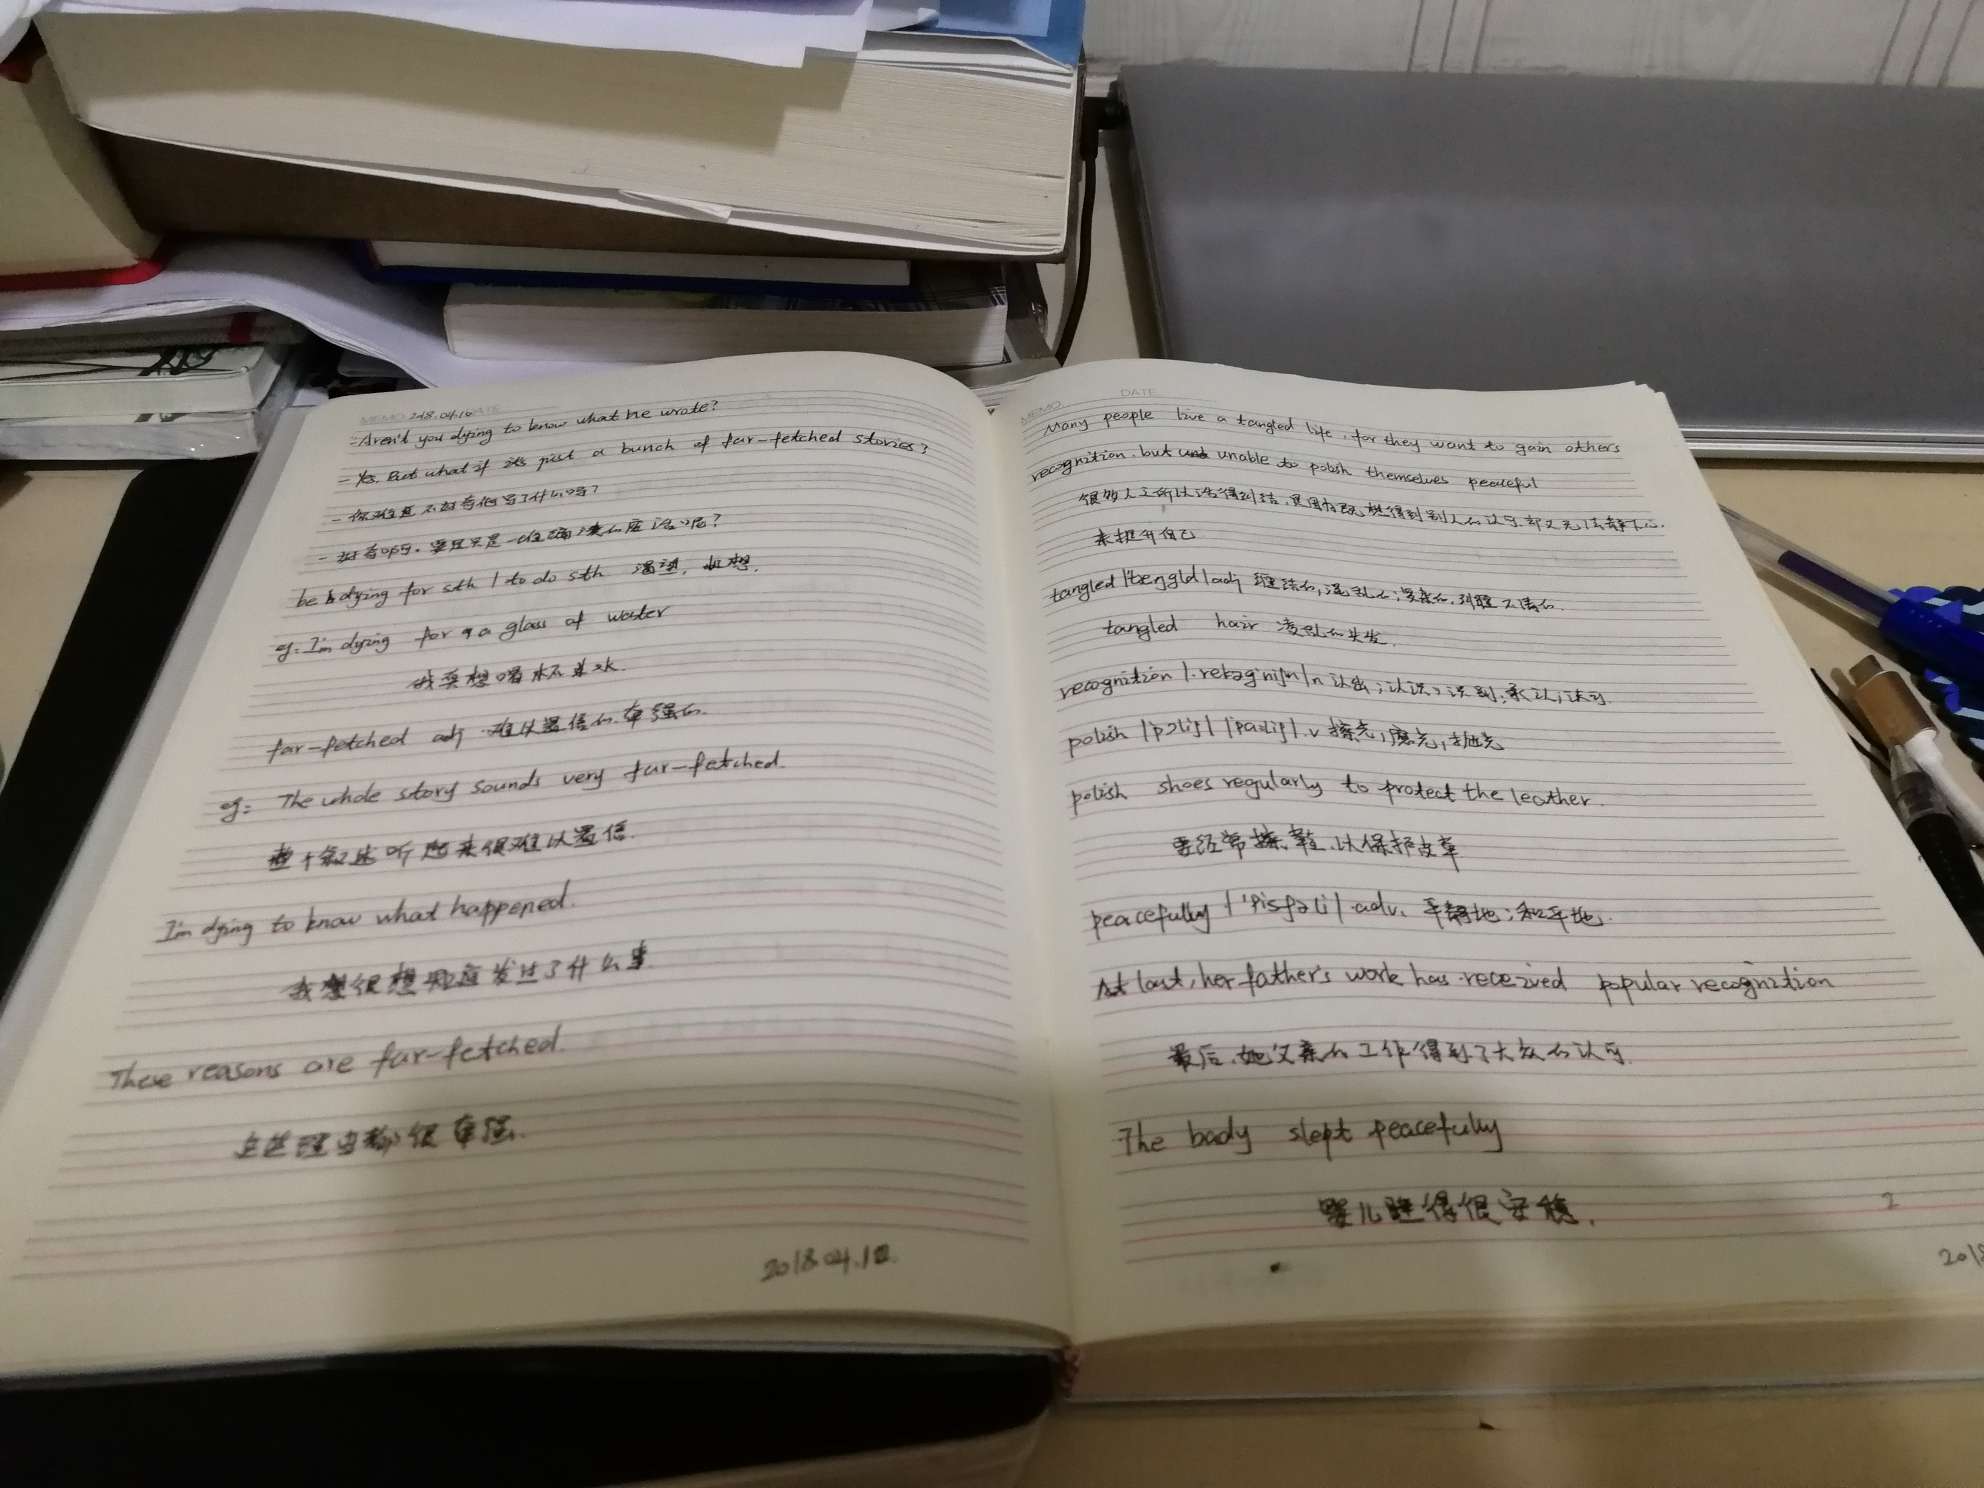 MEMO 2018.04.10 DATE
-Aren't you dying to know what he wrote?
- Yes. But what if it's just a bunch of far-fetched stories?
- 你难道不好奇他写了什么吗?
- 好奇啊。要是只是一堆瞎凑的废话呢?
be dying for sth / to do sth 渴望,
eg: I'm dying for a glass of water
我要想喝杯水.
far-fetched adj 难以置信的.牵强的.
eg: The whole story sounds very far-fetched.
整个叙述听起来很难以置信.
I'm dying to know what happened.
我很想知道发生了什么事
These reasons are far-fetched.
这些理由都很牵强.
2018.04.10.
MEMO DATE
Many people live a tangled life, for they want to gain others
recognition. but unable to polish themselves peaceful
很多人之所以活得纠结,是因为既想得到别人的认可,却又无法静下心.
来提升自己
tangled |'tæŋgld| adj 缠结的;混乱的;复杂的,
tangled hair 凌乱的头发.
recognition |ˌrekəgˈniʃn| n 认出;认识;识别;承认;认可.
polish |pɔliʃ| |pɑːliʃ| .v 擦亮;磨光;抛光
polish shoes regularly to protect the leather.
要经常擦鞋,以保护皮革
peacefully |'pisfəli| adv. 平静地;和平地.
At last, her father's work has received popular recognition
最后,她父亲的工作得到了大众的认可.
The baby slept peacefully
婴儿睡得很安稳.
2
2018